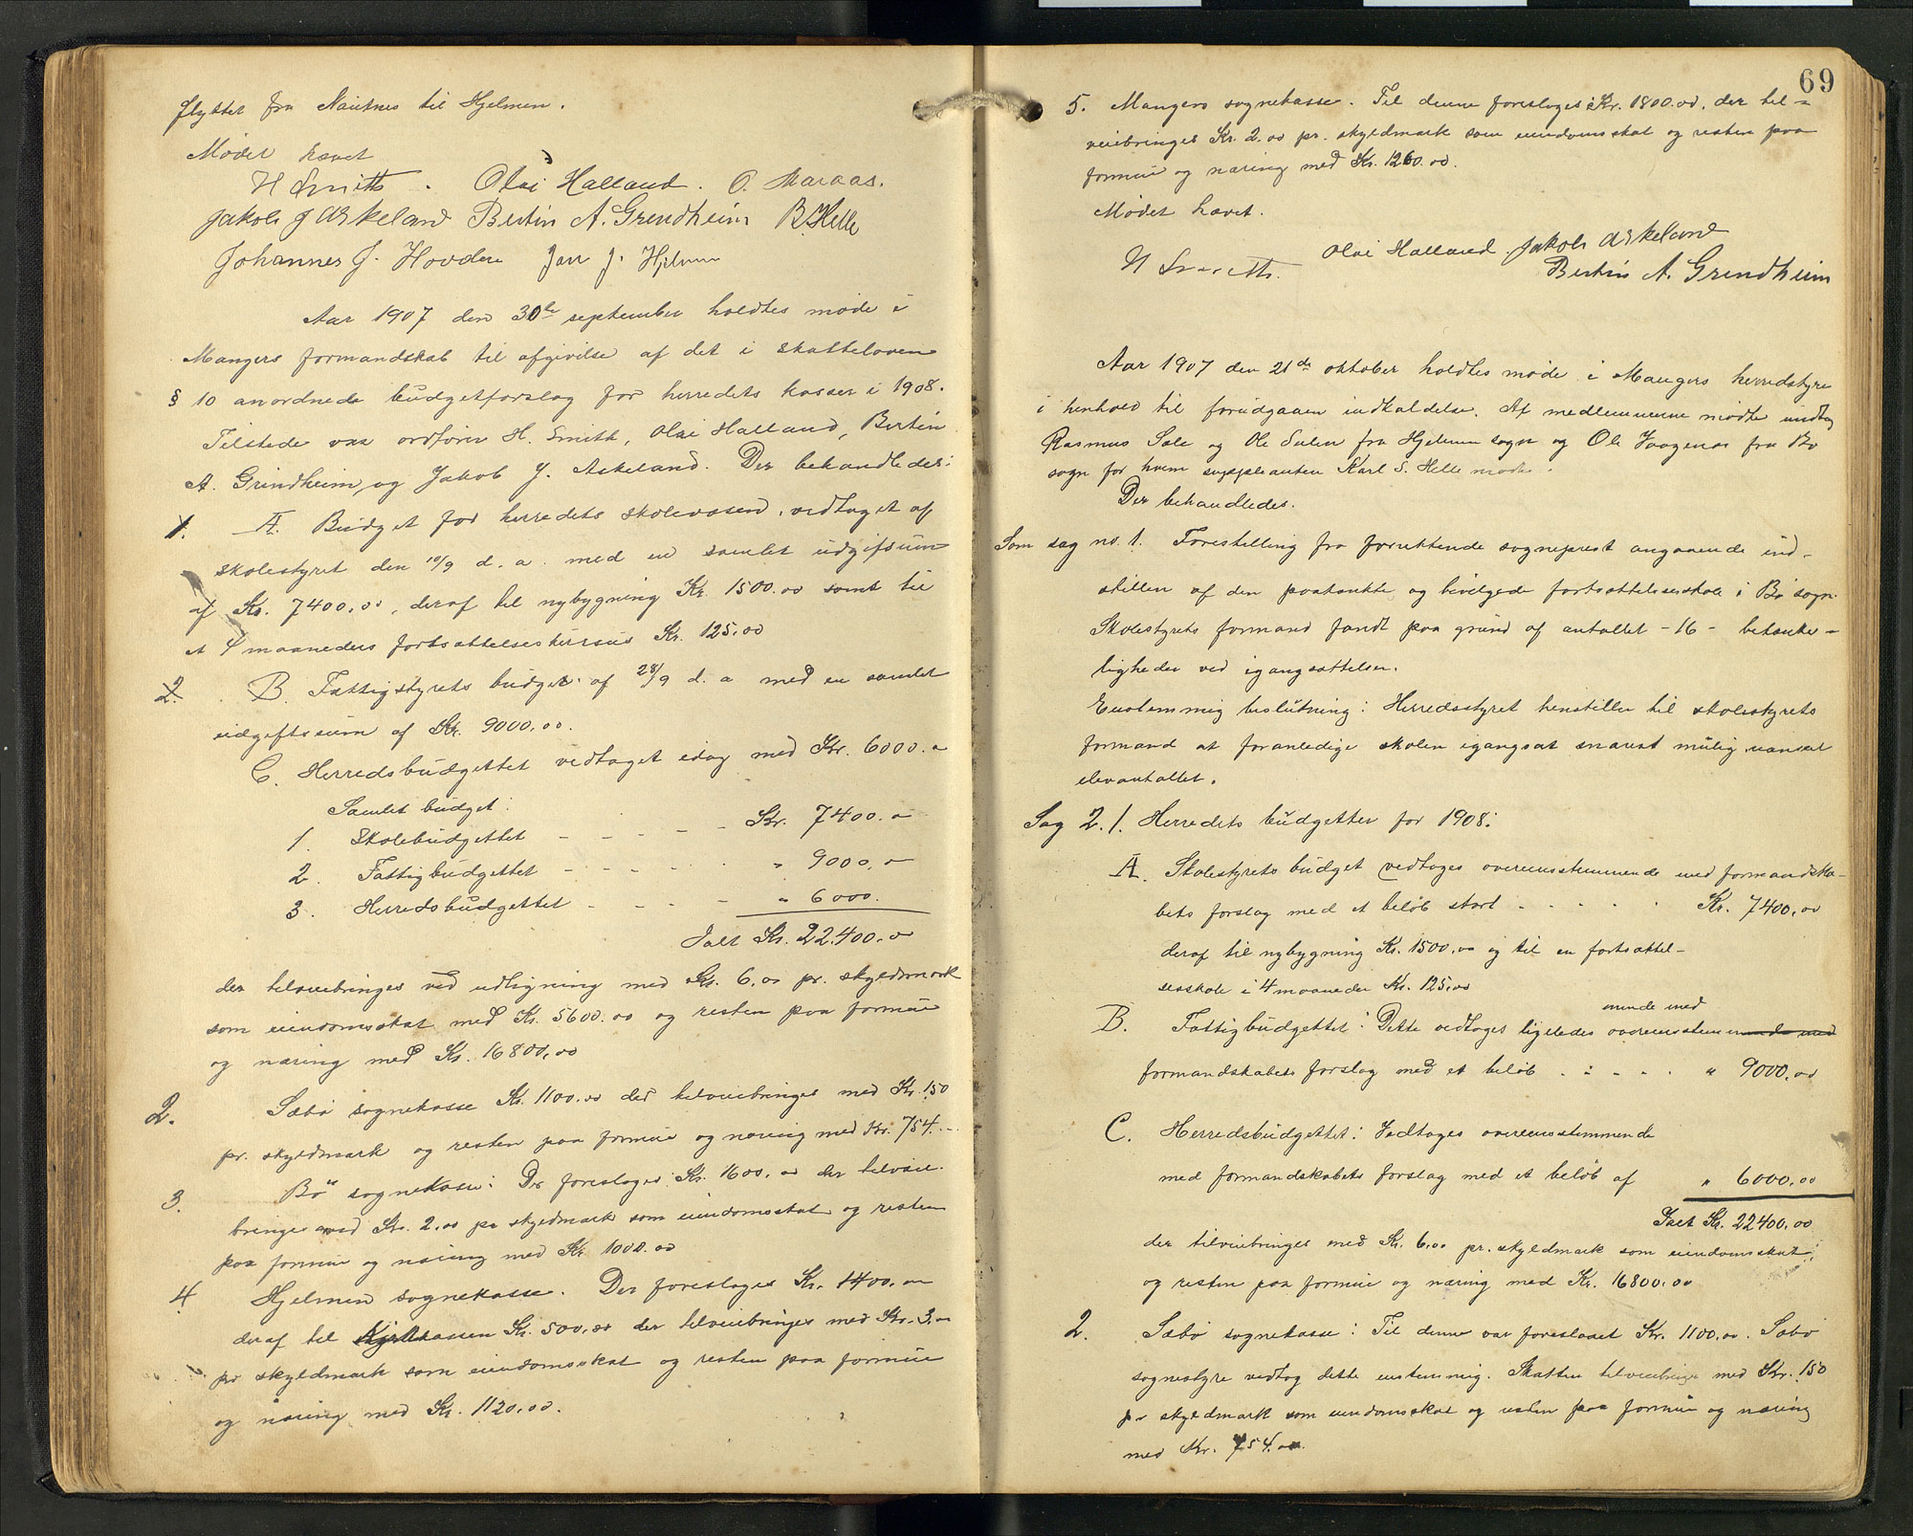 flyttet fra Nautnes til Hjelmen.
Mødet hævet
H Smith. Olai Halland. O. Maraas.
Jakob J Askeland Bertin A. Grendheim B. Helle
Johannes J. Hovden Jan J. Hjelmen
Aar 1907 den 30te september holdtes møde i
Mangers formandskab til afgivelse af det i skatteloven
§ 10 anordnede budgetforslag for herredets kasser i 1908.
Tilstede var ordfører H. Smith, Olai Halland, Bertin
A. Grindheim og Jakob J. Askeland. Der behandledes:
1. A. Budget for herredets skolevæsend, vedtaget af
skolestyret den 10/9 d. a. med en samlet udgifsum
af Kr. 7400.00, deraf til nybygning Kr. 1500.00 samt til
et 4 maaneders fortsættelseskursus Kr. 125.00
2. B. Fattigstyrets budget af 28/9 d. a med en samlet
udgiftssum af Kr. 9000.00.
C. Herredsbudgettet vedtaget idag med Kr. 6000.00
Samlet budget:
1. Skolebudgettet - - - - - Kr. 7400.00
2. Fattigbudgettet - - - - - " 9000.00
3. Herredsbudgettet - - - - " 6000.
Ialt Kr. 22.400.00
der tilveiebringes ved udligning med Kr. 6.00 pr. skyldmark
som eiendomsskat med Kr. 5600.00 og resten paa formue
og næring med Kr. 16800.00
2. Sæbø sognekasse Kr. 1100.00 der tilveiebringes med Kr. 1.50
pr. skyldmark og resten paa formue og næring med Kr. 754.-
3. Bø sognekasse: Der foreslages Kr. 1600.00 der tilveie-
bringes med Kr. 2.00 pr skyldmark som eiendomsskat og resten
paa formue og næring med Kr 1000.00
4 Hjelmen sognekasse. Der foreslages Kr. 1400.00
deraf til Kirkekassen Kr. 500.00 der tilveiebringes med Kr. 3.00
pr skyldmark som eiendomsskat og resten paa formue
og næring med Kr. 1120.00.
69
5. Mangers sognekasse. Til denne foreslages Kr. 1800.00, der til-
veiebringes Kr. 2.00 pr. skyldmark som eiendomsskat og resten paa
formue og næring med Kr. 1260.00.
Mødet hævet.
H Smith. Olai Halland Jakob Askeland
Bertin A. Grendheim
Aar 1907 den 21de oktober holdtes møde i Mangers herredstyre
i henhold til forudgaaen indkaldelse. Af medlemmerne mødte undtag
Rasmus Sale og Ole Sulen fra Hjelmen sogn og Ole Vaagenes fra Bø
sogn for hvem suppleanten Karl S. Helle mødte.
Der behandledes.
Som sag no. 1. Forestilling fra forrettende sogneprest angaaende ind-
stillen af den paatænkte og bevilgede fortsættelsesskole i Bø sogn.
Skolestyrets formand fandt paa grund af antallet - 16 - betænke-
ligheder ved igangsættelsen.
Enstemmig beslutning: Herredsstyret henstiller til skolestyrets
formand at foranledige skolen igangsat snarest mulig uanset
elevantallet.
Sag 2. 1. Herredets budgetter for 1908:
A. Skolestyrets budget vedtages overensstemmende med formandska-
bets forslag med et beløb stort - - - - - Kr. 7400.00
deraf til nybygning Kr. 1500.00 og til en fortsættel-
sesskole i 4 maaneder Kr. 125.00
mende med
B. Fattigbudgettet: Dette vedtages ligeledes overensstemmende med
formandskabets forslag med et beløb - - - - " 9000.00
C. Herredsbudgettet: Vedtages overensstemmende
med formandskabets forslag med et beløb af " 6000.00
Ialt Kr. 22400.00
der tilveiebringes med Kr. 6.00 pr. skyldmark som eiendomsskat
og resten paa formue og næring med Kr. 16800.00
2. Sæbø sognekasse: Til denne var foreslaaet Kr. 1100.00. Sæbø
sognestyre vedtog dette enstemmig. Skatten tilveiebringes med Kr. 1.50
pr skyldmark som eiendomsskat og resten paa formue og næring
med Kr. 754.00.